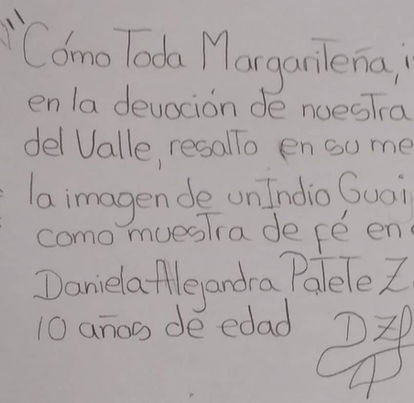 "Cómo Toda Margariteña, i
en la devoción de nuestra
del Valle, resalto en su me
la imagen de un Indio Guai
como muestra de fé en
Daniela Alejandra Patete Z
10 años de edad DZP